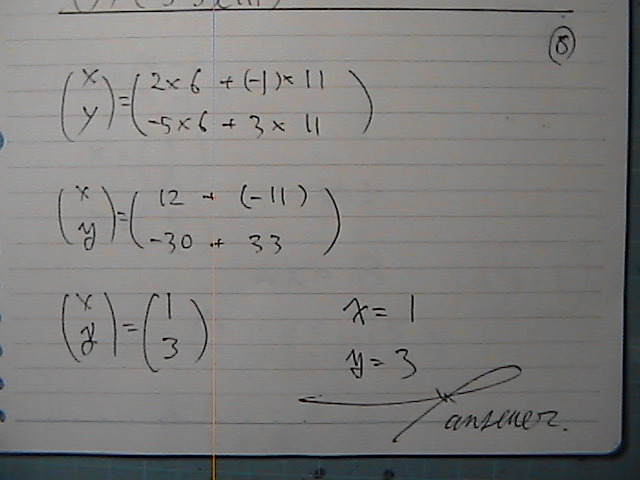 ⑧
(x y) = (2×6 + (-1)×11
-5×6 + 3×11)
(x y) = (12 + (-11)
-30 + 33)
(x y) = (1 3)
x = 1
y = 3
answer.